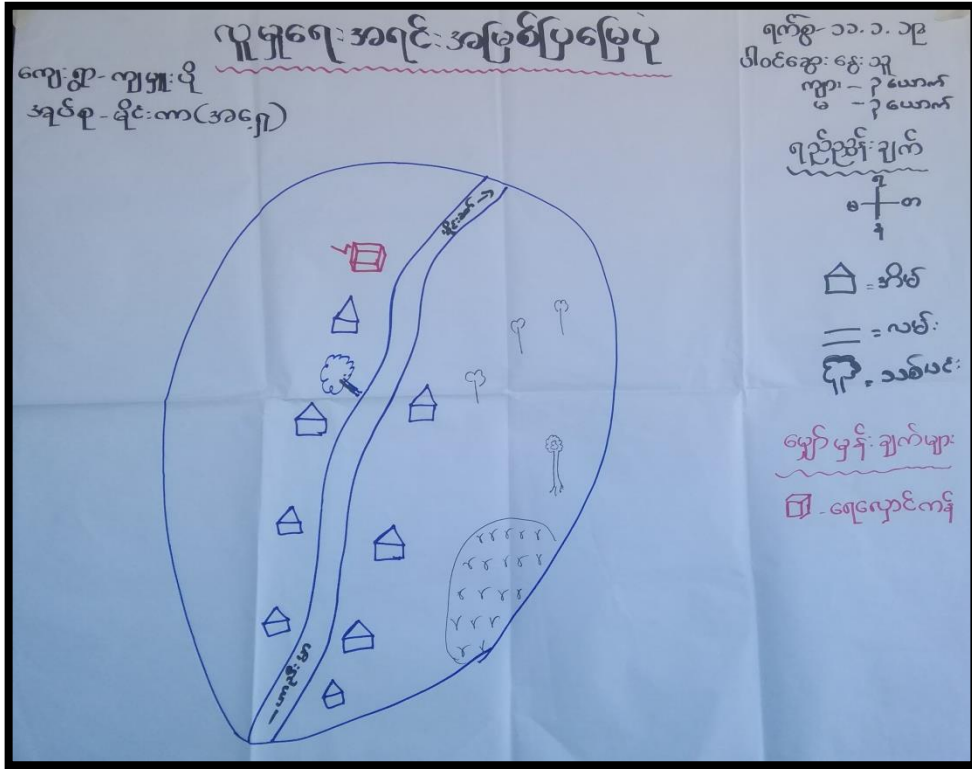 လူမှုရေးအရင်းအမြစ်ပြမြေပုံ
ကျေးရွာ-ကျမှူးပို
အုပ်စု-မိုင်းကာ(အရှေ့)
ရက်စွဲ-၁၁.၁.၁၉
ပါဝင်ဆွေးနွေးသူ
ကျား - ၃ယောက်
မ - ၃ယောက်
ရည်ညွှန်းချက်
မ တ
န
= အိမ်
= လမ်း
= သစ်ပင်
မျှော်မှန်းချက်များ
- ရေလှောင်ကန်